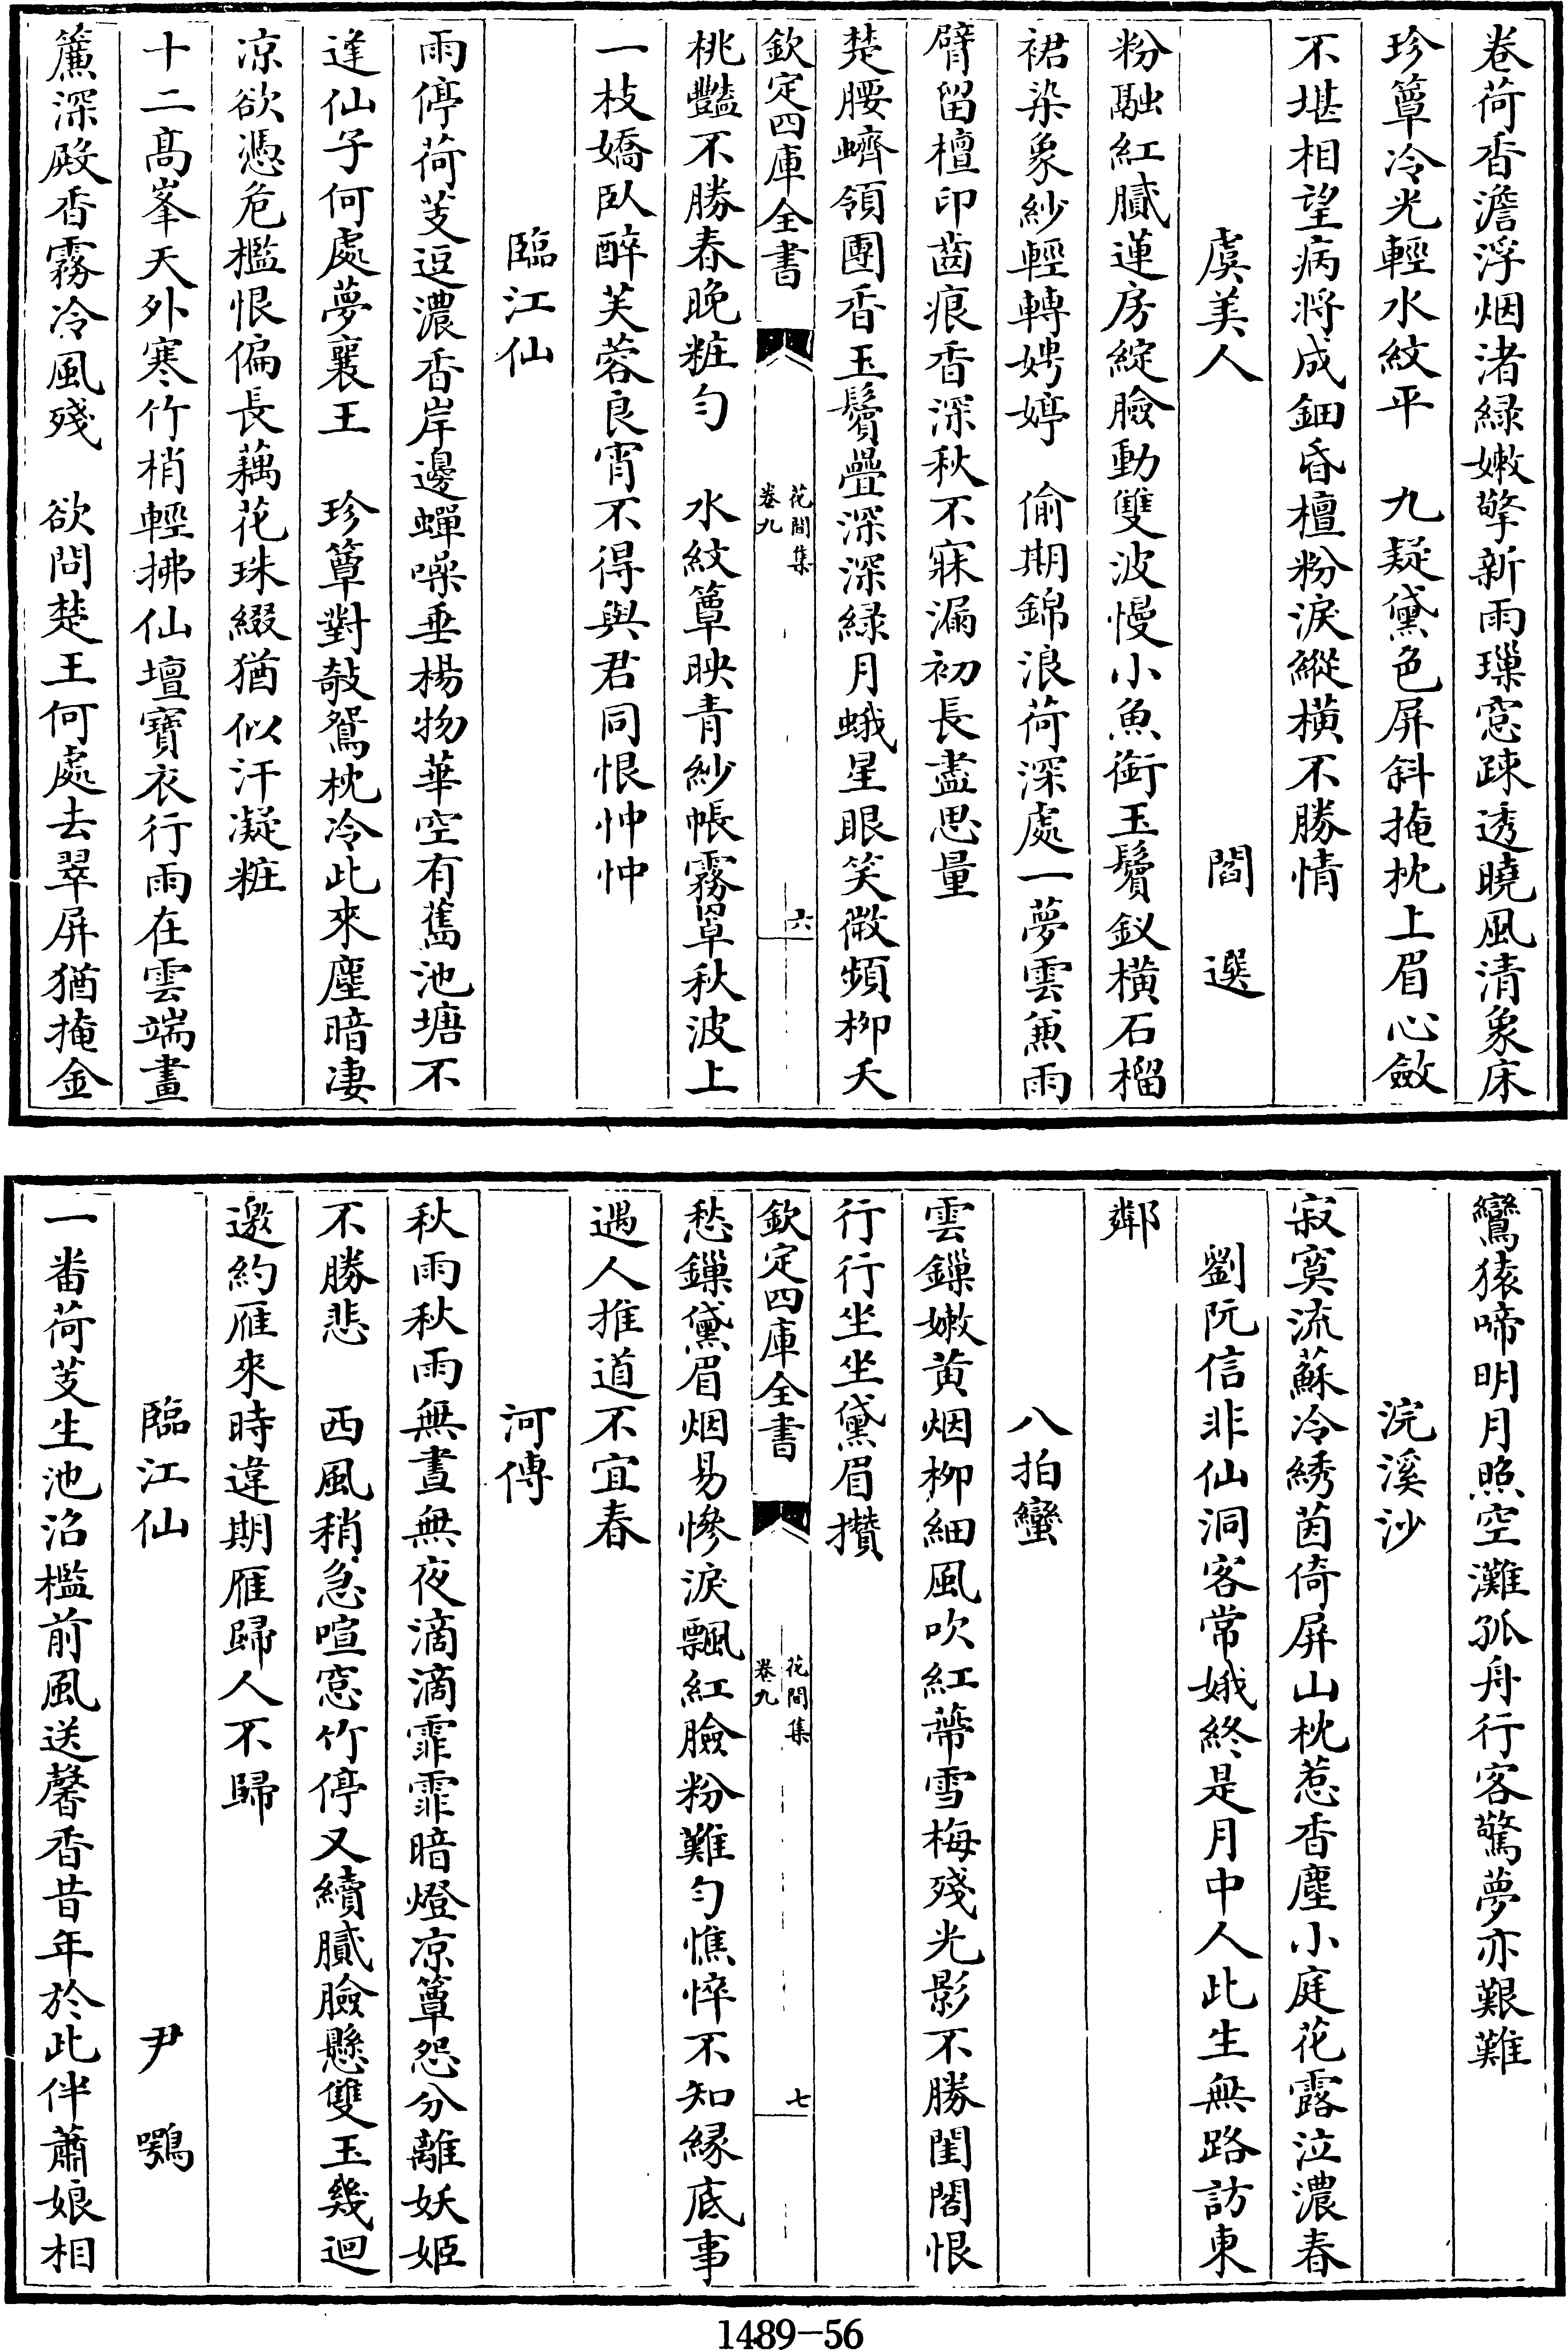 卷荷香澹浮烟渚緑嫩擎新雨璅窓踈透曉風清象床
珍簟冷光輕水紋平　九疑黛色屏斜掩枕上眉心斂
不堪相望病將成鈿昏檀粉淚縱横不勝情
虞美人　閻選
粉融紅膩蓮房綻臉動雙波慢小魚銜玉鬢釵橫石榴
裙染象紗輕轉娉婷　偷期錦浪荷深處一夢雲兼雨
臂留檀印齒痕香深秋不寐漏初長盡思量
楚腰蠐領團香玉鬢疊深深緑月蛾星眼笑微頻柳夭
欽定四庫全書　花間集　卷九　六
桃豔不勝春晚粧匀　水紋簟映青紗帳霧罩秋波上
一枝嬌臥醉芙蓉良宵不得與君同恨忡忡
臨江仙
雨停荷芰逗濃香岸邊蟬噪垂楊物華空有舊池塘不
逢仙子何處夢襄王　珍簟對敧鴛枕冷此來塵暗凄
凉欲憑危檻恨偏長藕花珠綴猶似汗凝粧
十二髙峯天外寒竹梢輕拂仙壇寶衣行雨在雲端畫
簾深殿香霧冷風殘　欲問楚王何處去翠屏猶掩金
鸞猿啼明月照空灘孤舟行客驚夢亦艱難
浣溪沙
寂寞流蘇冷綉茵倚屏山枕惹香塵小庭花露泣濃春
劉阮信非仙洞客常娥終是月中人此生無路訪東
鄰
八拍蠻
雲鏁嫩黄烟柳細風吹紅蔕雪梅殘光影不勝閨閣恨
行行坐坐黛眉攢
欽定四庫全書　花間集　卷九　七
愁鏁黛眉烟易惨淚飄紅臉粉難匀憔悴不知緣底事
遇人推道不宜春
河傳
秋雨秋雨無晝無夜滴滴霏霏暗燈凉簟怨分離妖姬
不勝悲　西風稍急喧窓竹停又續膩臉懸雙玉幾迴
邀約雁來時違期雁歸人不歸
臨江仙　尹鶚
一番荷芰生池沼檻前風送馨香昔年於此伴蕭娘相
1489-56